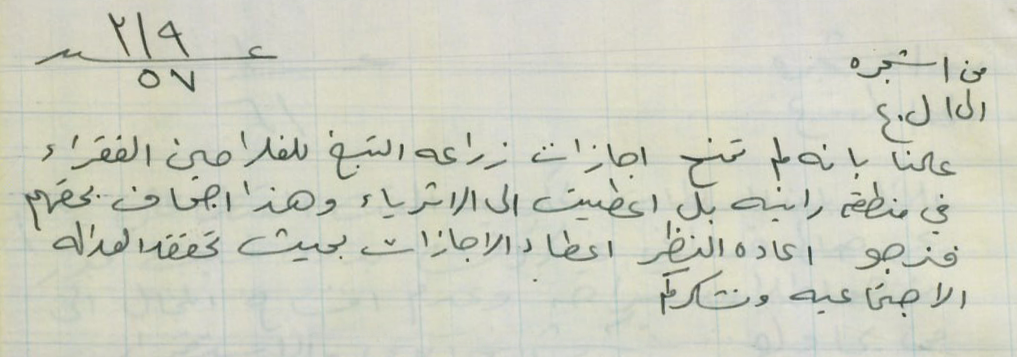 ع ٢١٩ س
٥٧
من اشجره
الى ل.ع
علمنا بانه لم تمنح اجازات زراعه التبغ للفلاحين الفقراء
في منطقة رانيه بل اعطيت الى الاثرياء وهذا اجحاف بحقهم
فنرجو اعاده النظر اعطاء الاجازات بحيث تحقق العداله
الاجتماعيه ونشكركم